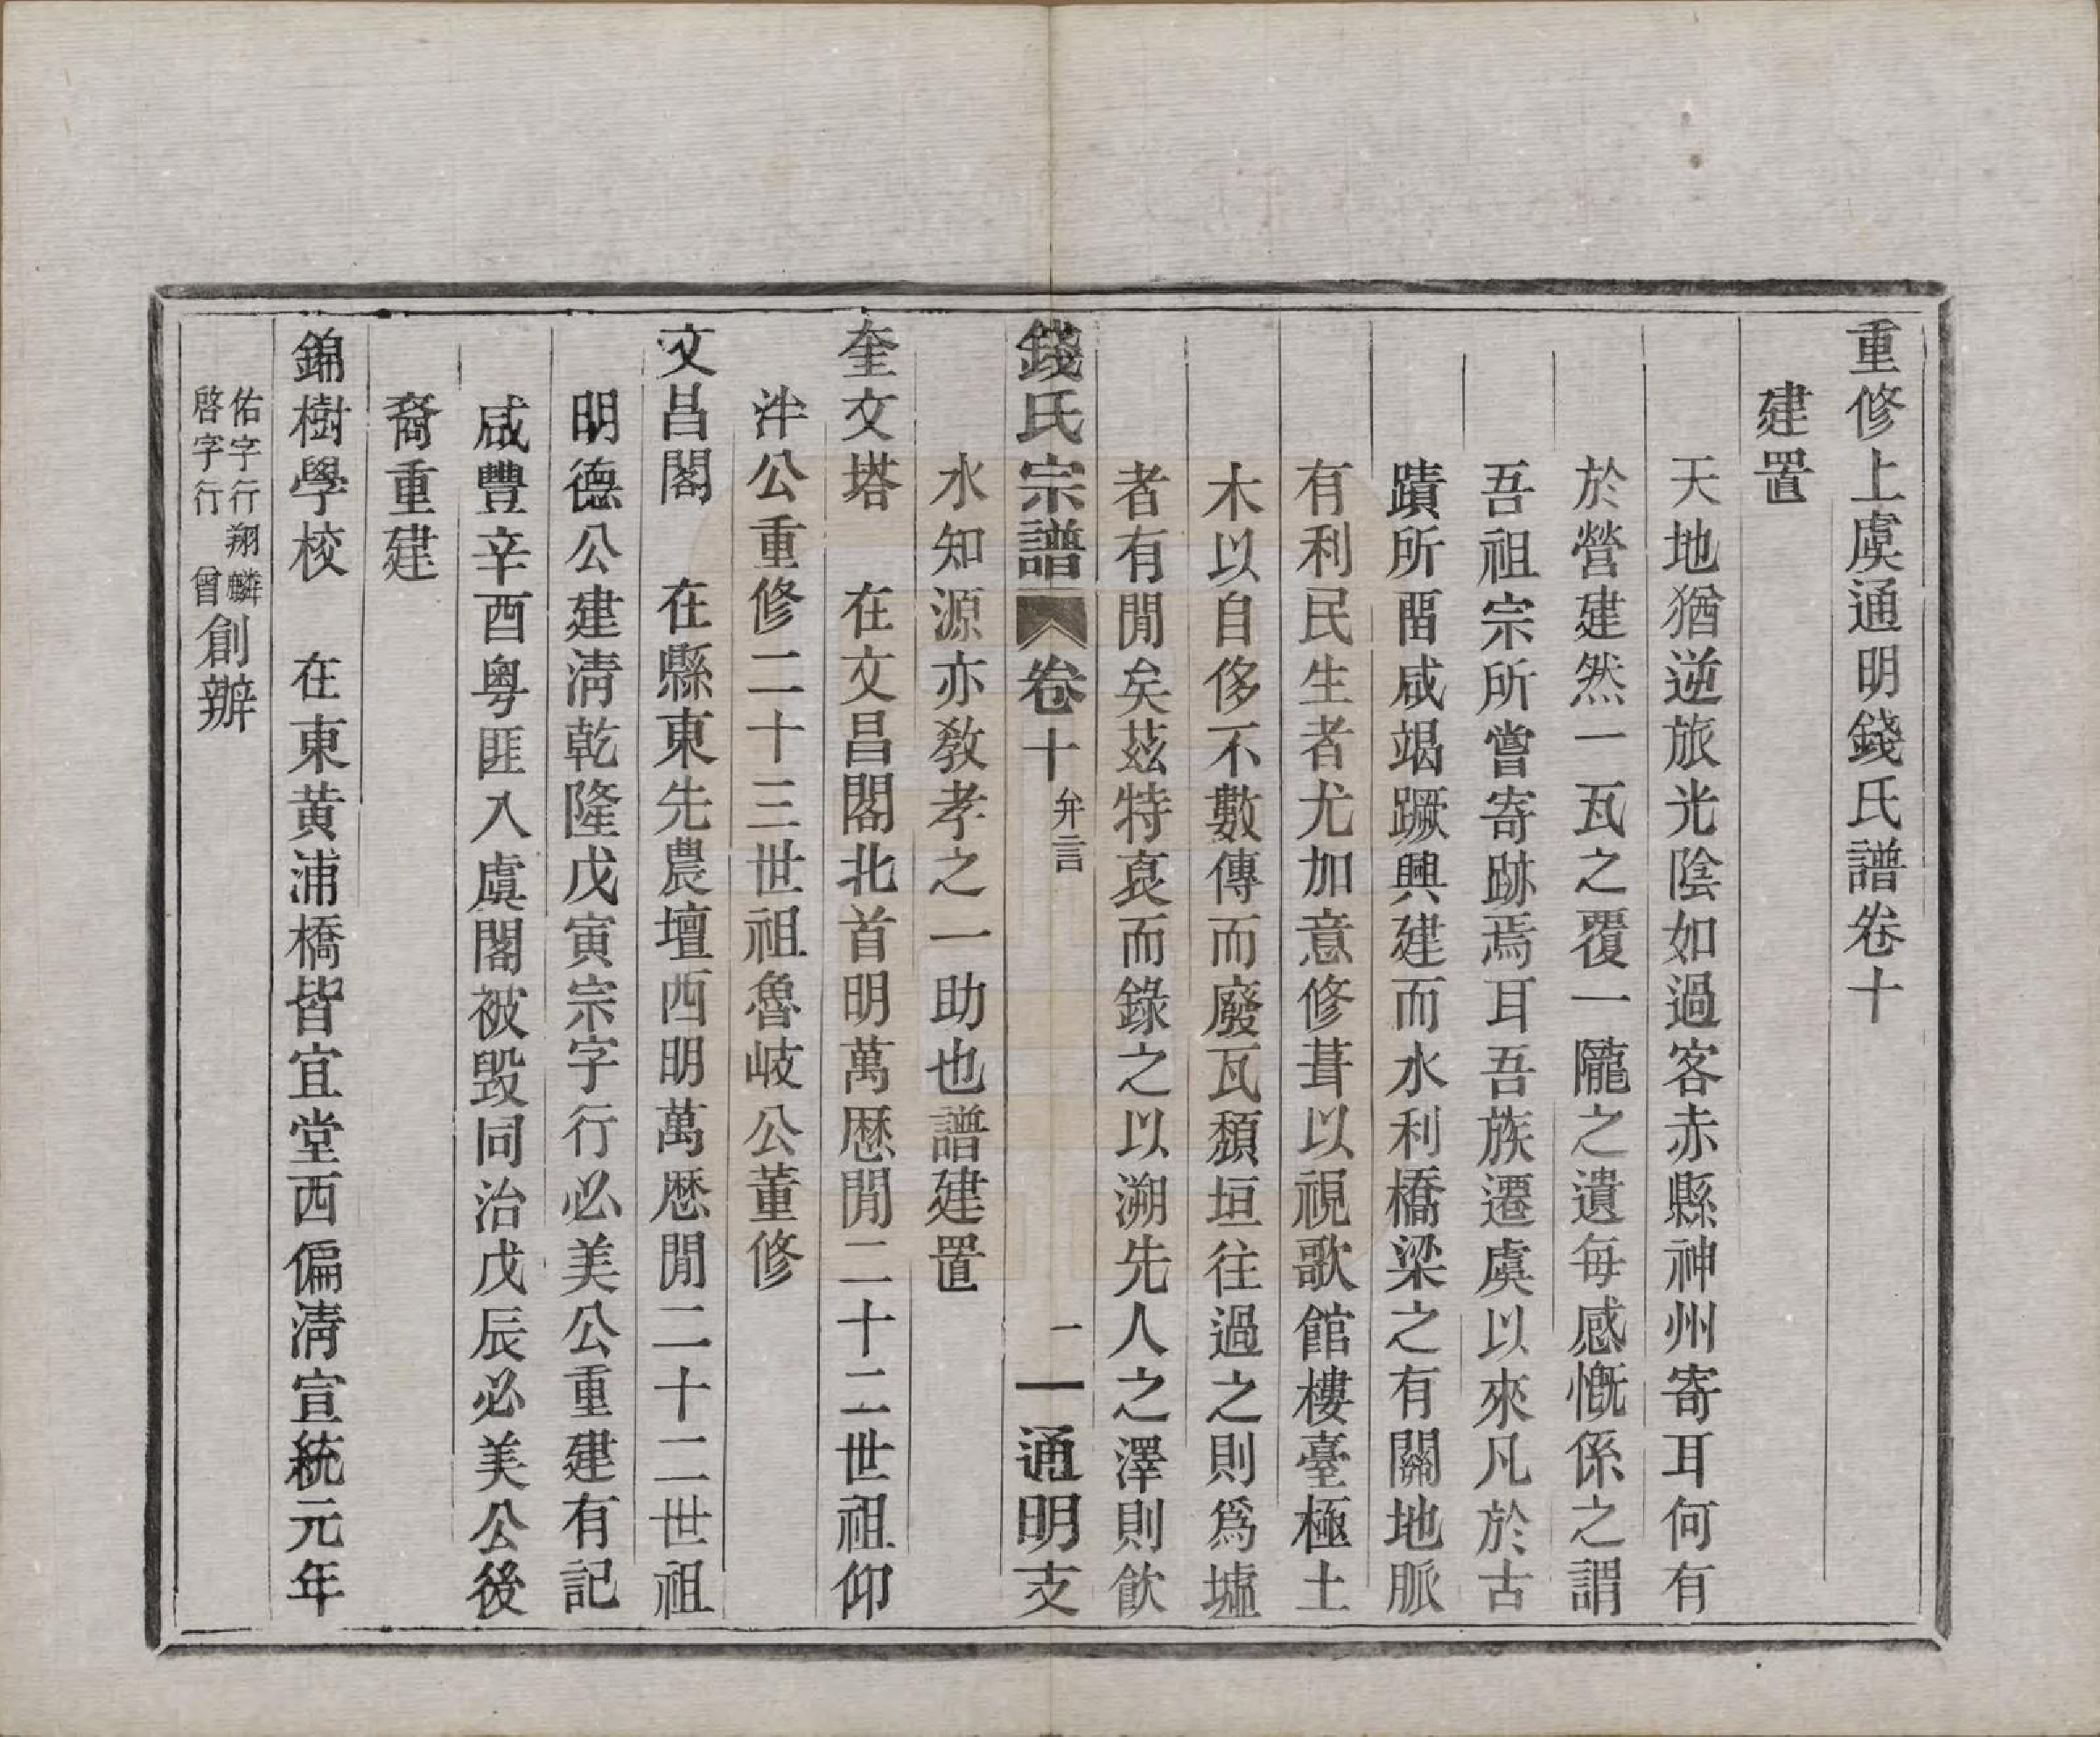 重修上虞通明錢氏譜卷十
建置
天地猶逆旅光陰如過客赤縣神州寄耳何有
於營建然一瓦之覆一隴之遺每感慨係之謂
吾祖宗所嘗寄跡焉耳吾族遷虞以來凡於古
蹟所畱咸竭蹶興建而水利橋梁之有關地脈
有利民生者尤加意修葺以視歌館樓臺極土
木以自侈不數傳而廢瓦頹垣往過之則爲墟
者有閒矣茲特裒而錄之以溯先人之澤則飲
錢氏宗譜 卷十 弁言 一 通明支
水知源亦敎孝之一助也譜建置
奎文塔 在文昌閣北首明萬厯閒二十二世祖仰
泮公重修二十三世祖魯岐公董修
文昌閣 在縣東先農壇西明萬厯閒二十二世祖
明德公建淸乾隆戊寅宗字行必美公重建有記
咸豐辛酉粵匪入虞閣被毀同治戊辰必美公後
裔重建
錦樹學校 在東黄浦橋皆宜堂西偏淸宣統元年
佑字行翔麟
啓字行 曾創辦